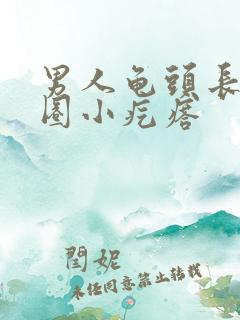 男人龟頭長
圈小疙瘩
閆妮
未经同意禁止转载